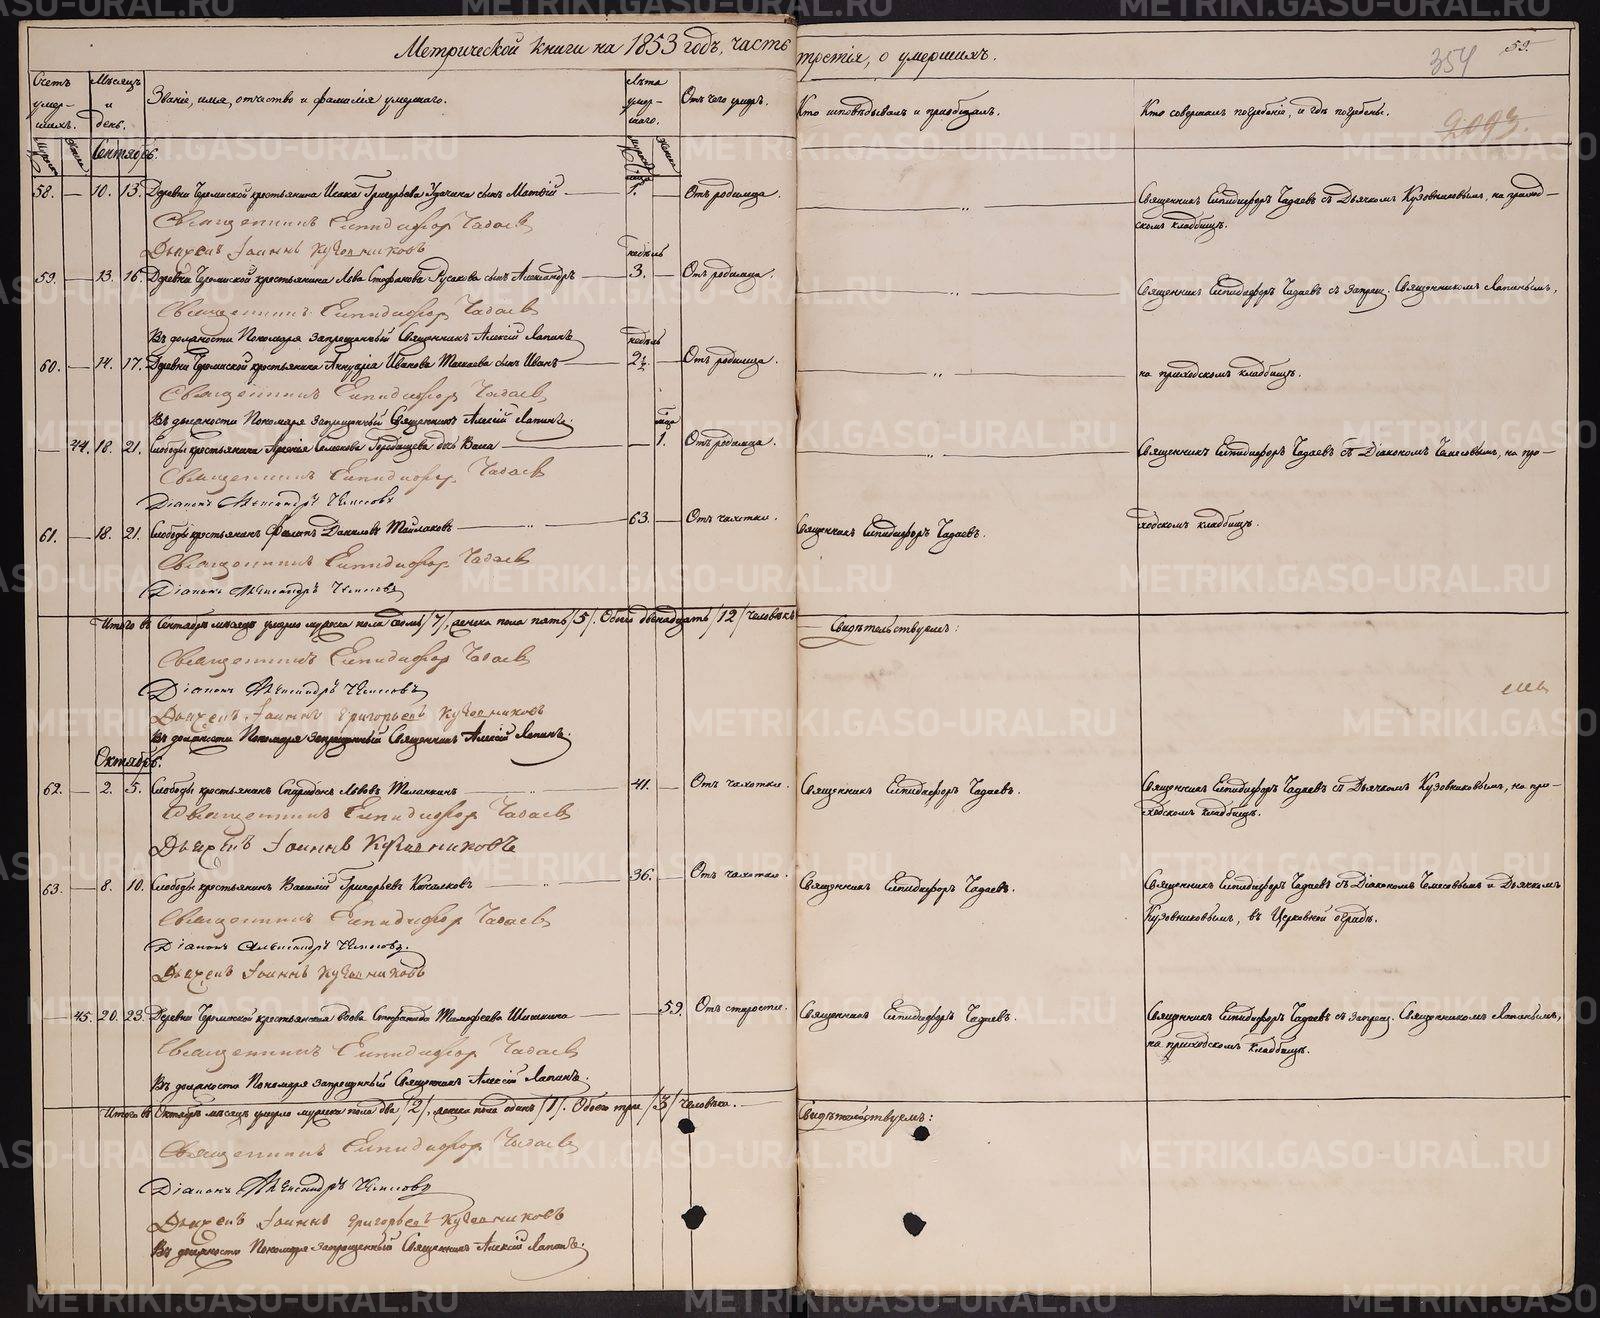 Метрической книги на 1853 годъ, часть третія, о умершихъ.
354
59.
2093.
Счетъ умер-шихъ.
Мѣсяцъ и день.
Званіе, имя, отчество и фамилія умершаго.
Лѣта умер-шаго.
Отъ чего умеръ.
Кто исповѣдывалъ и пріобщалъ.
Кто совершалъ погребеніе, и гдѣ погребены.
Сентябрь.
58. — 10. 13. Деревни крестьянина Исака Григорьева сынъ Матѳій — 1. — Отъ родимца. Священникъ Елпидифоръ Чадаевъ съ Дьячкомъ Кузовниковымъ, на приход-
скомъ кладбищѣ.
Священникъ Елпидифоръ Чадаевъ
Дьячекъ Іоаннъ Кузовниковъ
недѣль
59. — 13. 16. Деревни крестьянина Льва Стефанова Русакова сынъ Александръ — 3. — Отъ родимца. Священникъ Елпидифоръ Чадаевъ съ запрещ. Священникомъ Лапинымъ,
Священникъ Елпидифоръ Чадаевъ
Въ должности Пономаря запрещенный Священникъ Алексій Лапинъ
недѣль
60. — 14. 17. Деревни крестьянина Иванова сынъ Иванъ — 2½. — Отъ родимца. на приходскомъ кладбищѣ.
Священникъ Елпидифоръ Чадаевъ
Въ должности Пономаря запрещенный Священникъ Алексій Лапинъ.
— 44. 18. 21. Слободы крестьянина Семенова дочь — 1. Отъ родимца. Священникъ Елпидифоръ Чадаевъ съ Діакономъ на при-
Священникъ Елпидифоръ Чадаевъ
Діаконъ Александръ
61. — 18. 21. Слободы крестьянинъ Филипъ Даниловъ — 63. — Отъ чахотки. Священникъ Елпидифоръ Чадаевъ. ходскомъ кладбищѣ.
Священникъ Елпидифоръ Чадаевъ
Діаконъ Александръ
Итого въ Сентябрѣ мѣсяцѣ умерло мужеска пола семь /7/, женска пола пять /5/. Обоего двѣнадцать /12/ человѣкъ
Свидѣтельствуемъ:
Священникъ Елпидифоръ Чадаевъ
Діаконъ Александръ
Дьячекъ Іоаннъ Григорьевъ Кузовниковъ
Въ должности Пономаря запрещенный Священникъ Алексій Лапинъ.
Октябрь.
62. — 2. 5. Слободы крестьянинъ Спиридонъ Львовъ — 41. — Отъ чахотки. Священникъ Елпидифоръ Чадаевъ. Священникъ Елпидифоръ Чадаевъ съ Дьячкомъ Кузовниковымъ, на при-
ходскомъ кладбищѣ.
Священникъ Елпидифоръ Чадаевъ
Дьячекъ Іоаннъ Кузовниковъ
63. — 8. 10. Слободы крестьянинъ Василій Григорьевъ — 36. — Отъ чахотки. Священникъ Елпидифоръ Чадаевъ. Священникъ Елпидифоръ Чадаевъ съ Діакономъ и Дьячкомъ
Кузовниковымъ, въ Церковной оградѣ.
Священникъ Елпидифоръ Чадаевъ
Діаконъ Александръ
Дьячекъ Іоаннъ Кузовниковъ
— 45. 20. 23. Деревни крестьянская вдова Тимофеева Шишкина — 59. Отъ старости. Священникъ Елпидифоръ Чадаевъ. Священникъ Елпидифоръ Чадаевъ съ запрещ. Священникомъ Лапинымъ,
на приходскомъ кладбищѣ.
Священникъ Елпидифоръ Чадаевъ
Въ должности Пономаря запрещенный Священникъ Алексій Лапинъ.
Итого въ Октябрѣ мѣсяцѣ умерло мужеска пола два /2/, женска пола одинъ /1/. Обоего три /3/ человѣка.
Свидѣтельствуемъ:
Священникъ Елпидифоръ Чадаевъ
Діаконъ Александръ
Дьячекъ Іоаннъ Григорьевъ Кузовниковъ
Въ должности Пономаря запрещенный Священникъ Алексій Лапинъ.
METRIKI.GASO-URAL.RU